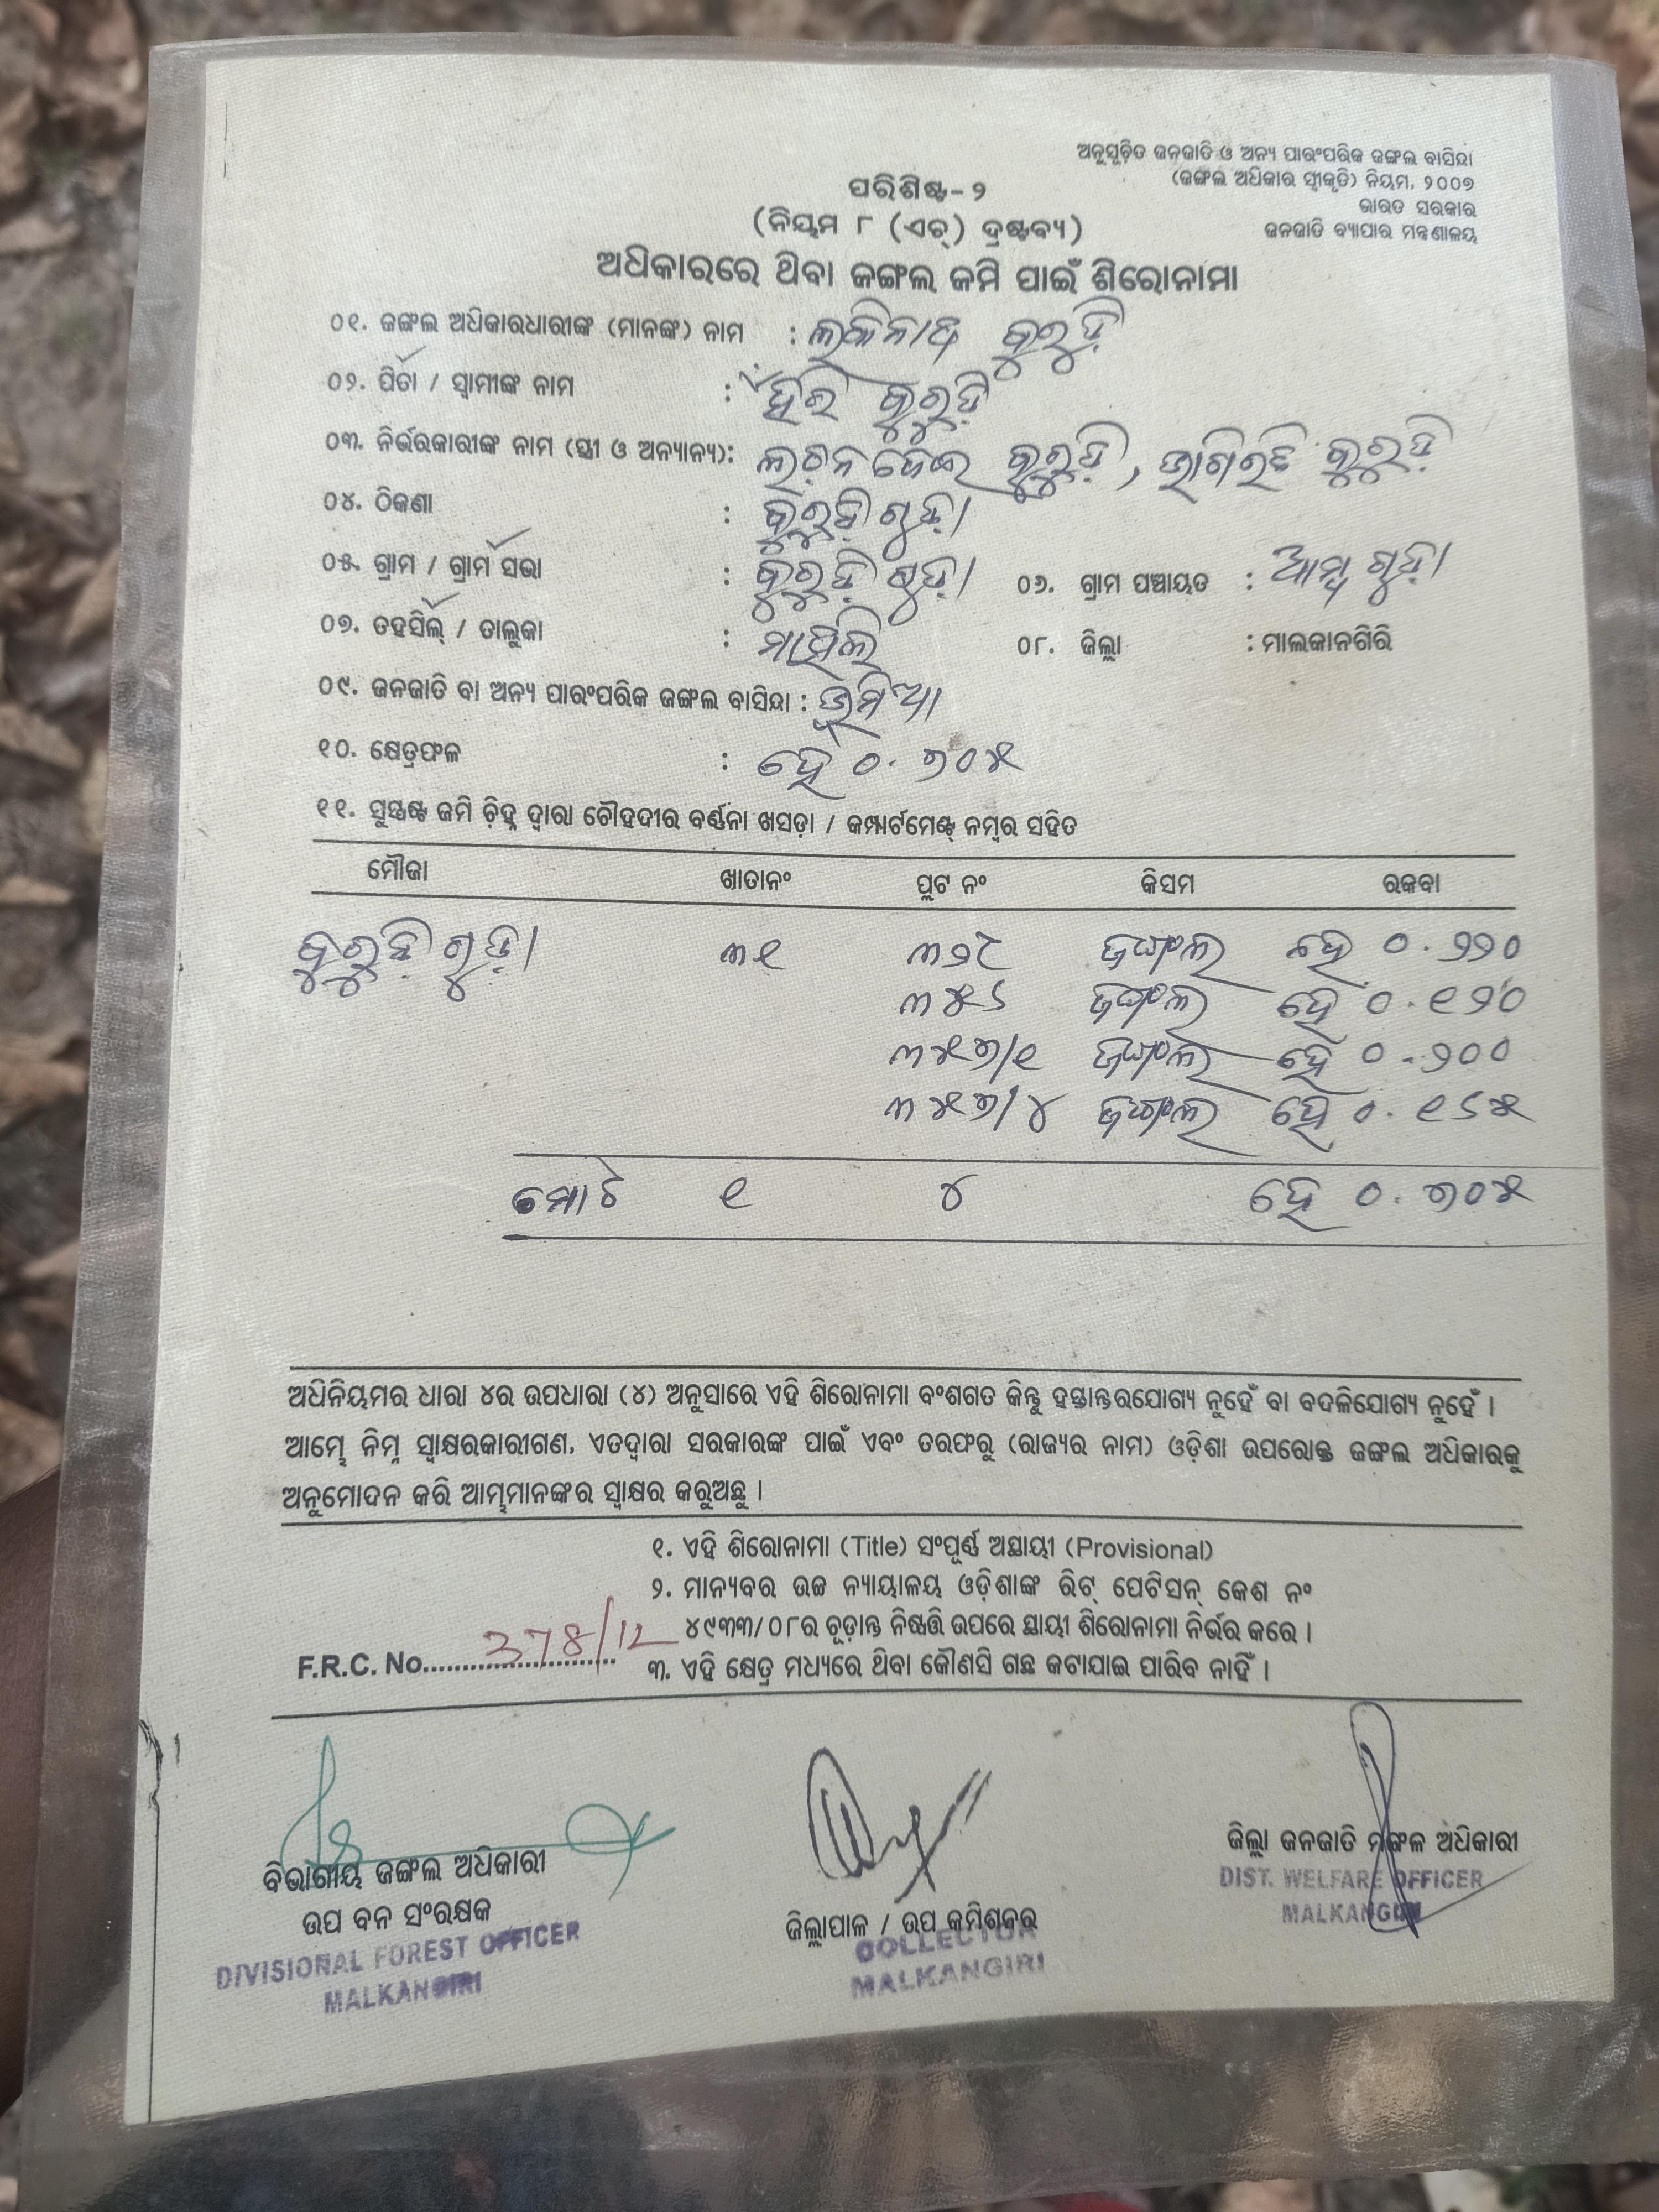 ଅନୁସୂଚିତ ଜନଜାତି ଓ ଅନ୍ୟ ପାରଂପରିକ ଜଙ୍ଗଲ ବାସିନ୍ଦା
(ଜଙ୍ଗଲ ଅଧିକାର ସ୍ୱୀକୃତି) ନିୟମ, ୨୦୦୭
ଭାରତ ସରକାର
ଜନଜାତି ବ୍ୟାପାର ମନ୍ତ୍ରଣାଳୟ
ପରିଶିଷ୍ଟ-୨
(ନିୟମ ୮ (ଏଚ୍) ଦ୍ରଷ୍ଟବ୍ୟ)
ଅଧିକାରରେ ଥିବା ଜଙ୍ଗଲ ଜମି ପାଇଁ ଶିରୋନାମା
୦୧. ଜଙ୍ଗଲ ଅଧିକାରଧାରୀଙ୍କ (ମାନଙ୍କ) ନାମ : ଲକିନାଥ କୁରୁଡ଼ି
୦୨. ପିତା / ସ୍ୱାମୀଙ୍କ ନାମ : ହରି କୁରୁଡ଼ି
୦୩. ନିର୍ଭରକାରୀଙ୍କ ନାମ (ସ୍ତ୍ରୀ ଓ ଅନ୍ୟାନ୍ୟ): କୁରୁଡ଼ି, କୁରୁଡ଼ି
୦୪. ଠିକଣା : କୁରୁଡ଼ି ଗୁଡ଼ା
୦୫. ଗ୍ରାମ / ଗ୍ରାମ ସଭା : କୁରୁଡ଼ି ଗୁଡ଼ା ୦୬. ଗ୍ରାମ ପଞ୍ଚାୟତ : ଆମ୍ବ ଗୁଡ଼ା
୦୭. ତହସିଲ୍ / ତାଲୁକା : ମାଥିଲି ୦୮. ଜିଲ୍ଲା : ମାଲକାନଗିରି
୦୯. ଜନଜାତି ବା ଅନ୍ୟ ପାରଂପରିକ ଜଙ୍ଗଲ ବାସିନ୍ଦା : ଭୂମିଆ
୧୦. କ୍ଷେତ୍ରଫଳ : ହେ ୦.୭୦୫
୧୧. ସୁସ୍ପଷ୍ଟ ଜମି ଚିହ୍ନ ଦ୍ୱାରା ଚୌହଦୀର ବର୍ଣ୍ଣନା ଖସଡ଼ା / କମ୍ପାର୍ଟମେଣ୍ଟ୍ ନମ୍ବର ସହିତ
ମୌଜା ଖାତାନଂ ପ୍ଲଟ ନଂ କିସମ ରକବା
କୁରୁଡ଼ି ଗୁଡ଼ା ୩୧ ୩୨୮ ଜଙ୍ଗଲ ହେ ୦.୨୨୦
୩୫୬ ଜଙ୍ଗଲ ହେ ୦.୧୨୦
୩୫୭/୧ ଜଙ୍ଗଲ ହେ ୦.୨୦୦
୩୫୭/୪ ଜଙ୍ଗଲ ହେ ୦.୧୬୫
ମୋଟ ୧ ୪ ହେ ୦.୭୦୫
ଅଧିନିୟମର ଧାରା ୪ର ଉପଧାରା (୪) ଅନୁସାରେ ଏହି ଶିରୋନାମା ବଂଶଗତ କିନ୍ତୁ ହସ୍ତାନ୍ତରଯୋଗ୍ୟ ନୁହେଁ ବା ବଦଳିଯୋଗ୍ୟ ନୁହେଁ ।
ଆମ୍ଭେ ନିମ୍ନ ସ୍ୱାକ୍ଷରକାରୀଗଣ, ଏତଦ୍ୱାରା ସରକାରଙ୍କ ପାଇଁ ଏବଂ ତରଫରୁ (ରାଜ୍ୟର ନାମ) ଓଡ଼ିଶା ଉପରୋକ୍ତ ଜଙ୍ଗଲ ଅଧିକାରକୁ
ଅନୁମୋଦନ କରି ଆମ୍ଭମାନଙ୍କର ସ୍ୱାକ୍ଷର କରୁଅଛୁ ।
୧. ଏହି ଶିରୋନାମା (Title) ସଂପୂର୍ଣ୍ଣ ଅସ୍ଥାୟୀ (Provisional)
୨. ମାନ୍ୟବର ଉଚ୍ଚ ନ୍ୟାୟାଳୟ ଓଡ଼ିଶାଙ୍କ ରିଟ୍ ପେଟିସନ୍ କେଶ ନଂ
୪୯୩୩/୦୮ର ଚୂଡ଼ାନ୍ତ ନିଷ୍ପତ୍ତି ଉପରେ ସ୍ଥାୟୀ ଶିରୋନାମା ନିର୍ଭର କରେ ।
F.R.C. No. 378/12
୩. ଏହି କ୍ଷେତ୍ର ମଧ୍ୟରେ ଥିବା କୌଣସି ଗଛ କଟାଯାଇ ପାରିବ ନାହିଁ ।
ବିଭାଗୀୟ ଜଙ୍ଗଲ ଅଧିକାରୀ
ଉପ ବନ ସଂରକ୍ଷକ
DIVISIONAL FOREST OFFICER
MALKANGIRI
ଜିଲ୍ଲାପାଳ / ଉପ କମିଶନର
COLLECTOR
MALKANGIRI
ଜିଲ୍ଲା ଜନଜାତି ମଙ୍ଗଳ ଅଧିକାରୀ
DIST. WELFARE OFFICER
MALKANGIRI